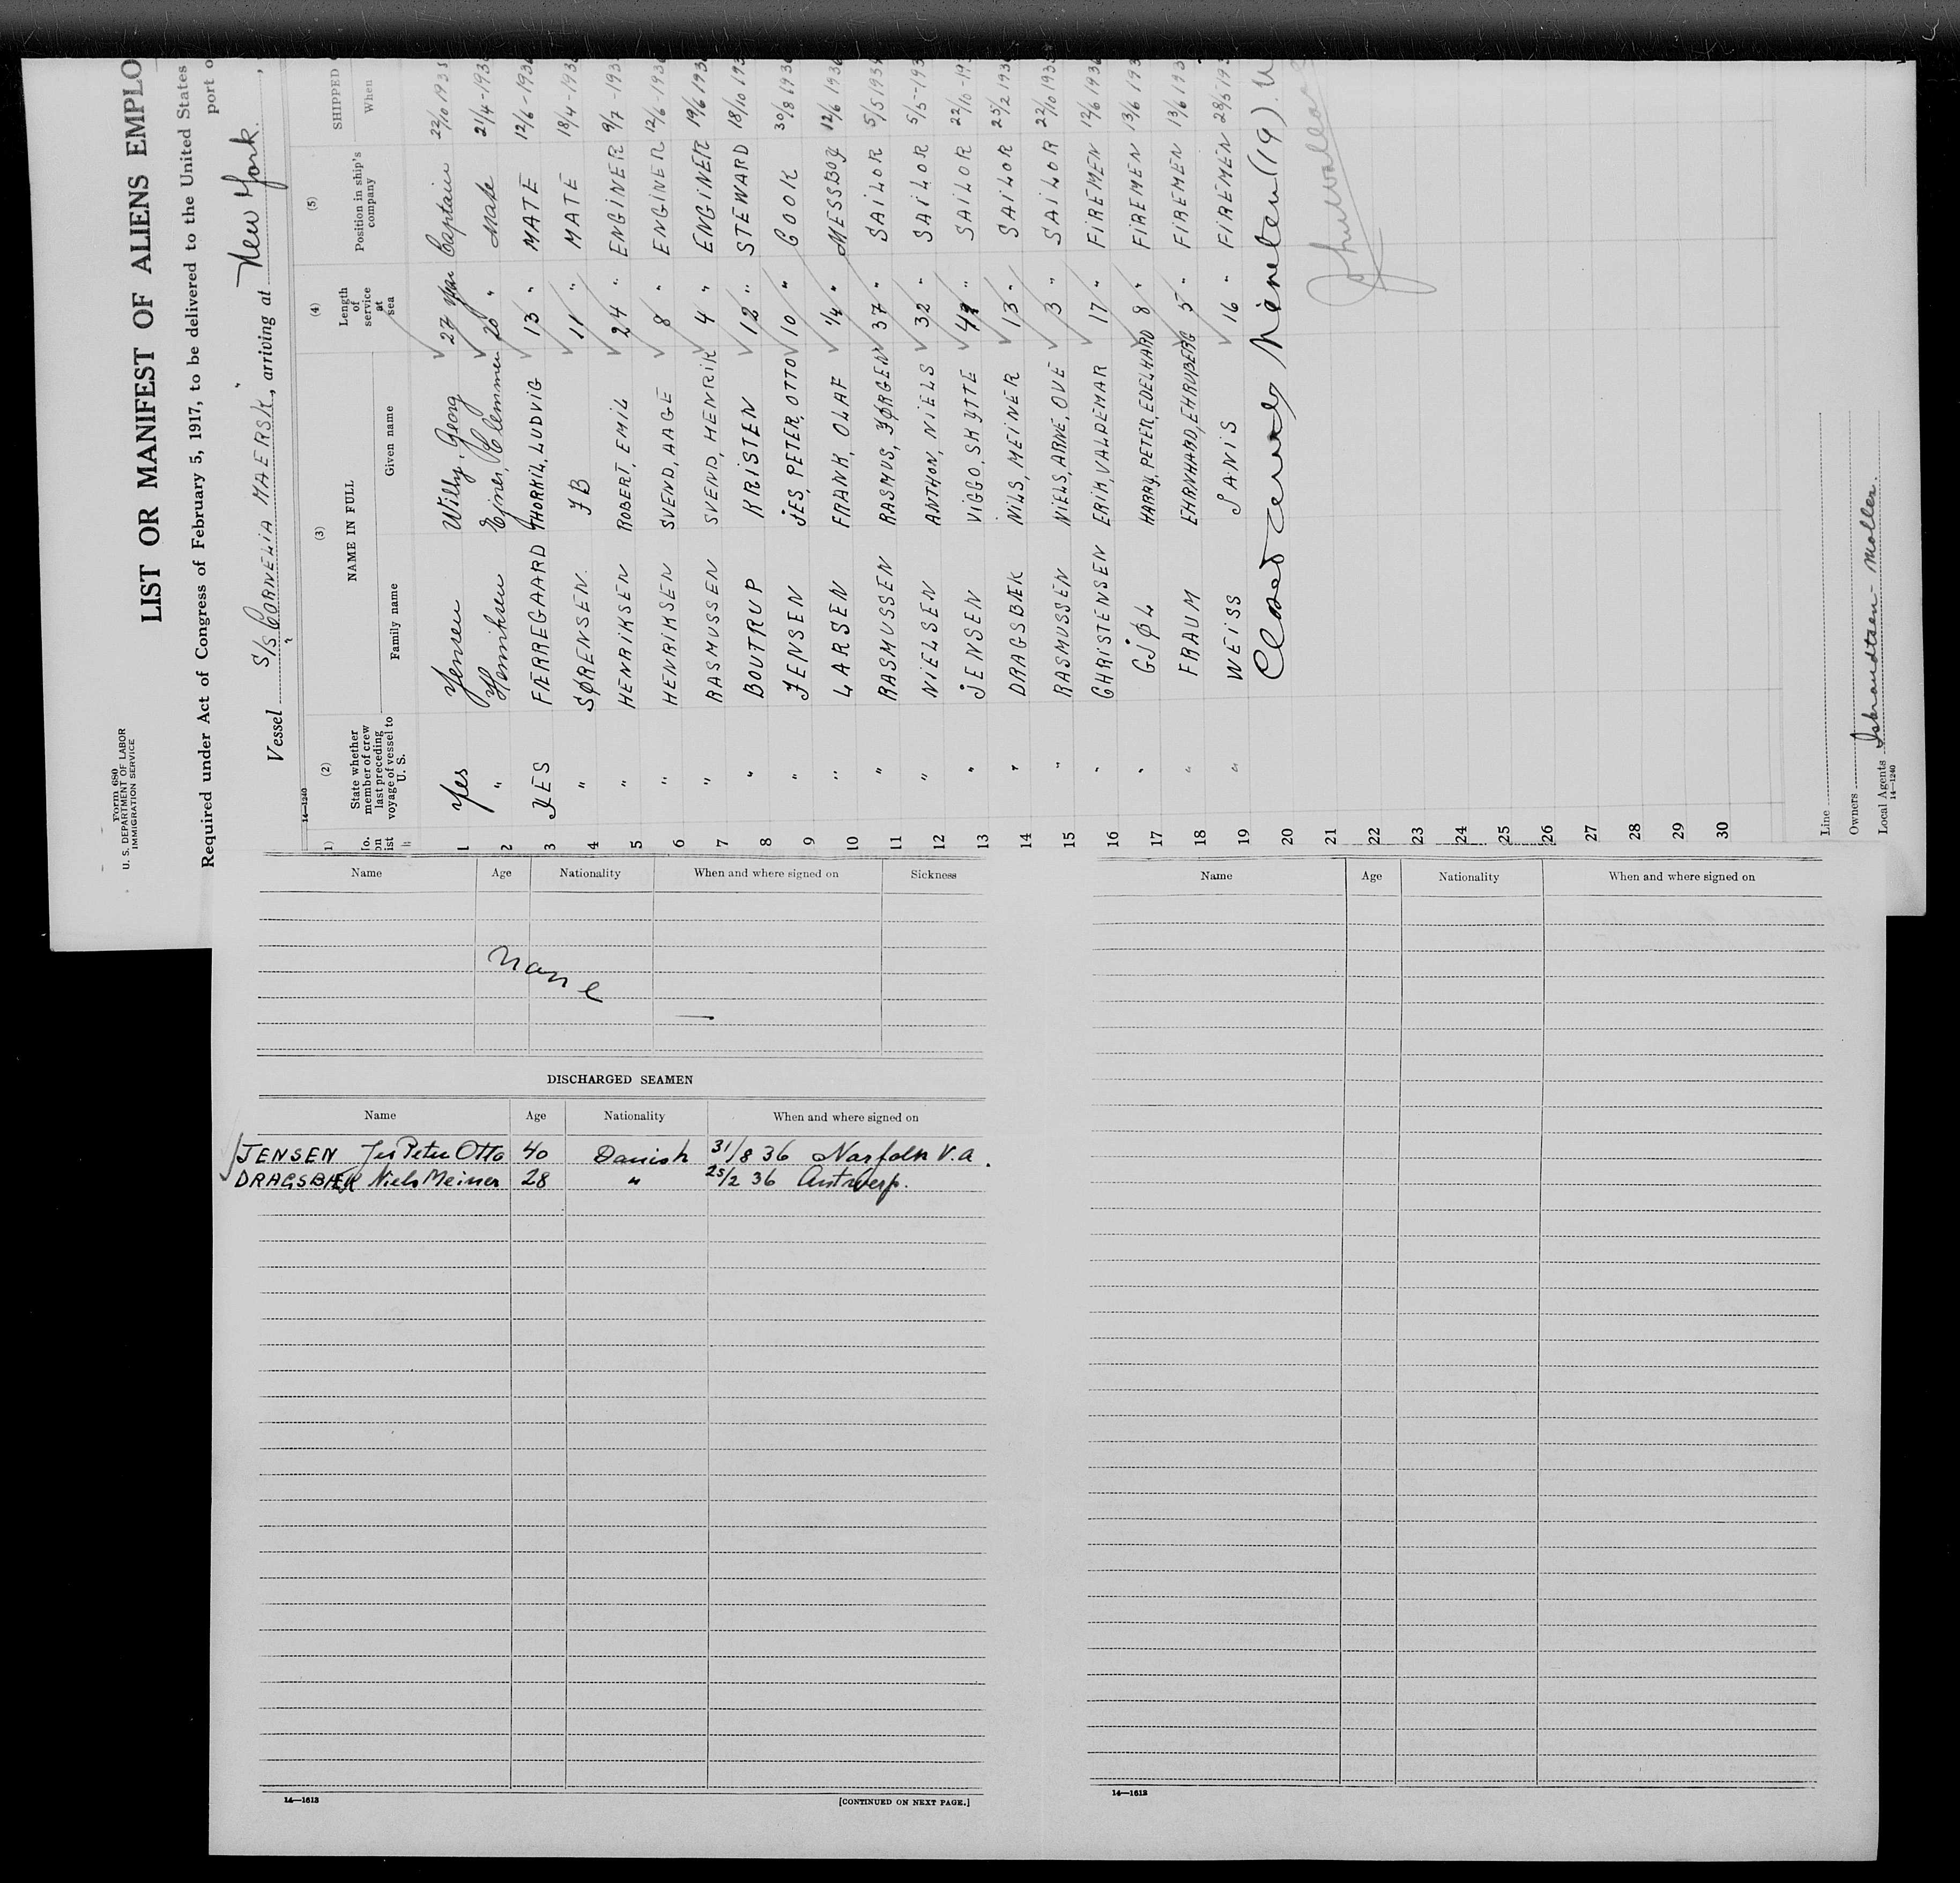 Form 680
U. S. DEPARTMENT OF LABOR
IMMIGRATION SERVICE
LIST OR MANIFEST OF ALIENS EMPLO
Required under Act of Congress of February 5, 1917, to be delivered to the United States
port o
Vessel S/S CORNELIA MAERSK, arriving at New York.,
14—1240
1) (2) (3) (4) (5)
No. on list
State whether member of crew last preceding voyage of vessel to U. S.
NAME IN FULL
Family name Given name
Length of service at sea
Position in ship's company
SHIPPED
When
1 Yes Jensen Willy, Georg 27 Captain 22/10 193
2 " Henriksen Ejner, Clemmen 20 " Mate 21/4-193
3 YES FÆRREGAARD THORKIL, LUDVIG 13 " MATE 12/6-193
4 " SØRENSEN. IB 11 " MATE 18/4-193
5 " HENRIKSEN ROBERT, EMIL 24 " ENGINER 9/7-193
6 " HENRIKSEN SVEND, AAGE 8 " ENGINER 12/6-193
7 " RASMUSSEN SVEND, HENRIK 4 " ENGINER 19/6 193
8 " BOUTRUP KRISTEN 12 " STEWARD 18/10 193
9 " JENSEN JES, PETER, OTTO 10 " COOK 30/8 193
10 " LARSEN FRANK, OLAF 1/4 " MESSBOY 12/6 193
11 " RASMUSSEN RASMUS, JØRGEN 37 " SAILOR 5/5 193
12 " NIELSEN ANTHON, NIELS 32 " SAILOR 5/5-193
13 " JENSEN VIGGO, SKYTTE " SAILOR 22/10-19
14 " DRAGSBÆK NILS, MEINER 13 " SAILOR 25/2 193
15 " RASMUSSEN NIELS, ARNE, OVE 3 " SAILOR 22/10 193
16 " CHRISTENSEN ERIK, VALDEMAR 17 " FIREMEN 12/6 193
17 " GJØL HARRY, PETER, EDELHARD 8 " FIREMEN 13/6 193
18 " FRAUM EHRNHARD, EHRNBERG 5 " FIREMEN 13/6 193
19 " WEISS JANIS 16 " FIREMEN 28/5 193
20 Closed Nineteen (19).
21
22
23
24
25
26
27
28
29
30
Line
Owners
Local Agents Isbrandtsen-Moller.
14—1240
Name Age Nationality When and where signed on Sickness
None
DISCHARGED SEAMEN
Name Age Nationality When and where signed on
JENSEN Jes Peter Otto 40 Danish 31/8 36 Norfolk V.a.
DRAGSBÆK Niels Meiner 28 " 25/2 36 Antwerp.
14—1613 [CONTINUED ON NEXT PAGE.]
Name Age Nationality When and where signed on
14—1613